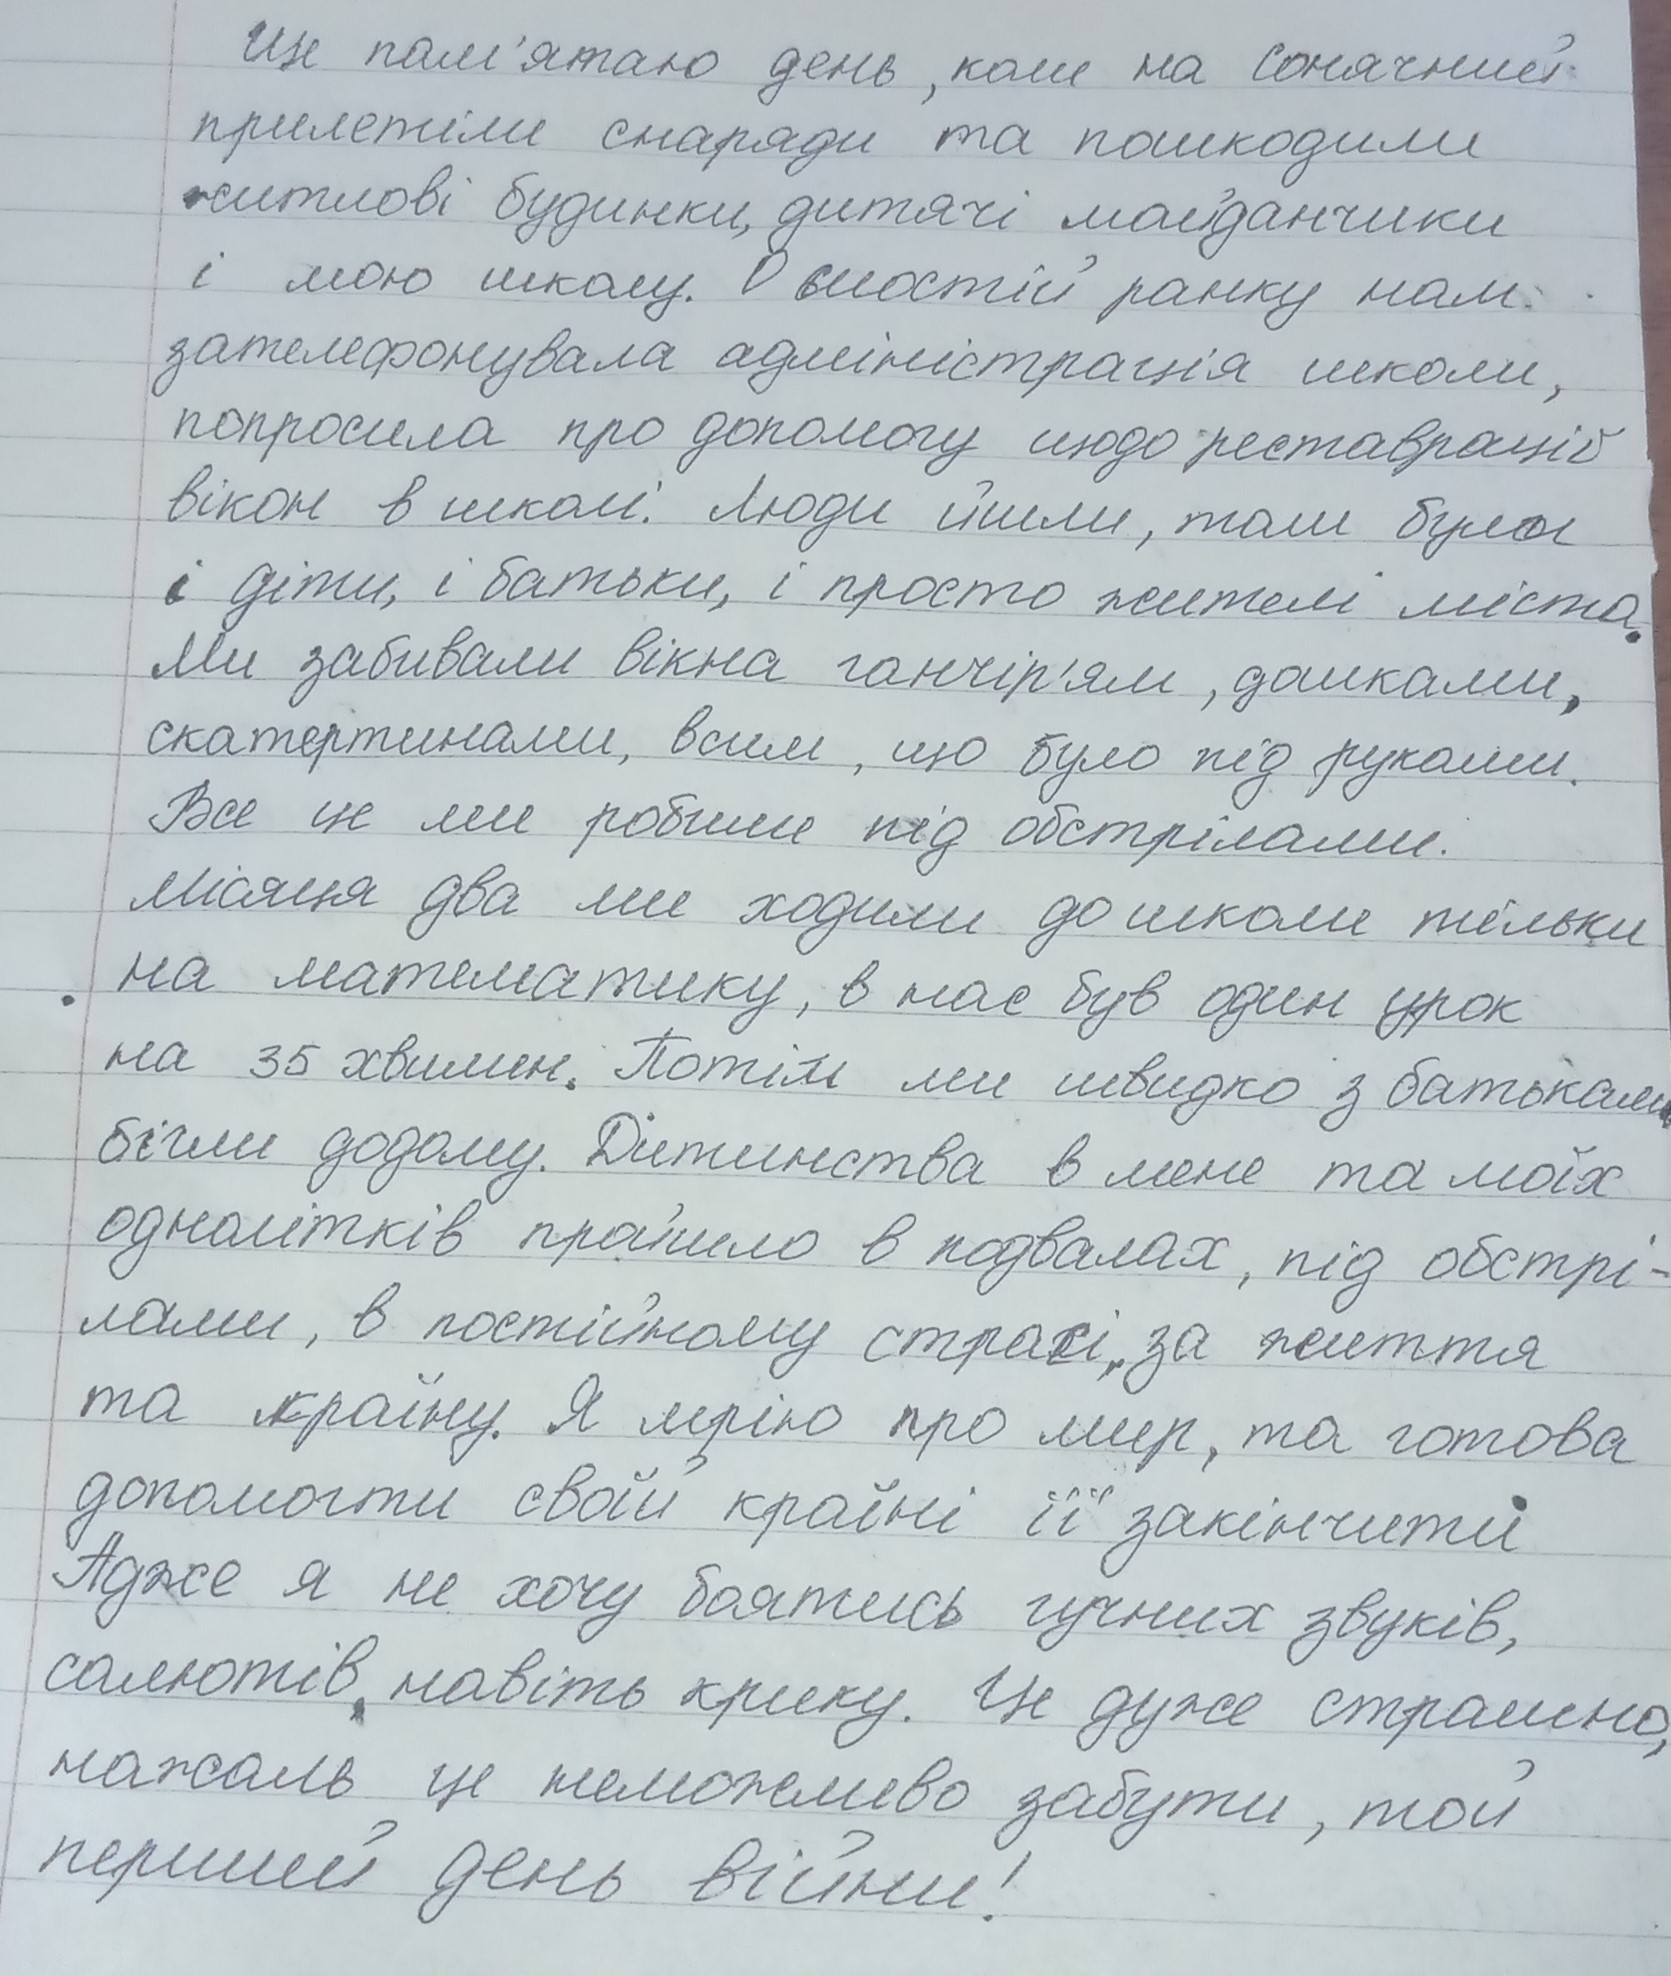 Ще пам'ятаю день, коли на Сонячний
прилетіли снаряди та пошкодили
житлові будинки, дитячі майданчики
і мою школу. О шостій ранку нам
зателефонувала адміністрація школи,
попросила про допомогу щодо реставрації
вікон в школі. Люди йшли, там були
і діти, і батьки, і просто жителі міста.
Ми забивали вікна ганчір'ям, дошками,
скатертинами, всим, що було під руками.
Все це ми робили під обстрілами.
Місяця два ми ходили до школи тільки
на математику, в нас був один урок
на 35 хвилин. Потім ми швидко з батьками
бігли додому. Дитинства в мене та моїх
однолітків пройшло в подвалах, під обстрі-
лами, в постійному страсі, за життя
та країну. Я мрію про мир, та готова
допомогти своїй країні її закінчити
Адже я не хочу боятись гучних звуків,
салютів, навіть крику. Це дуже страшно,
нажаль це неможливо забути, той
перший день війни!